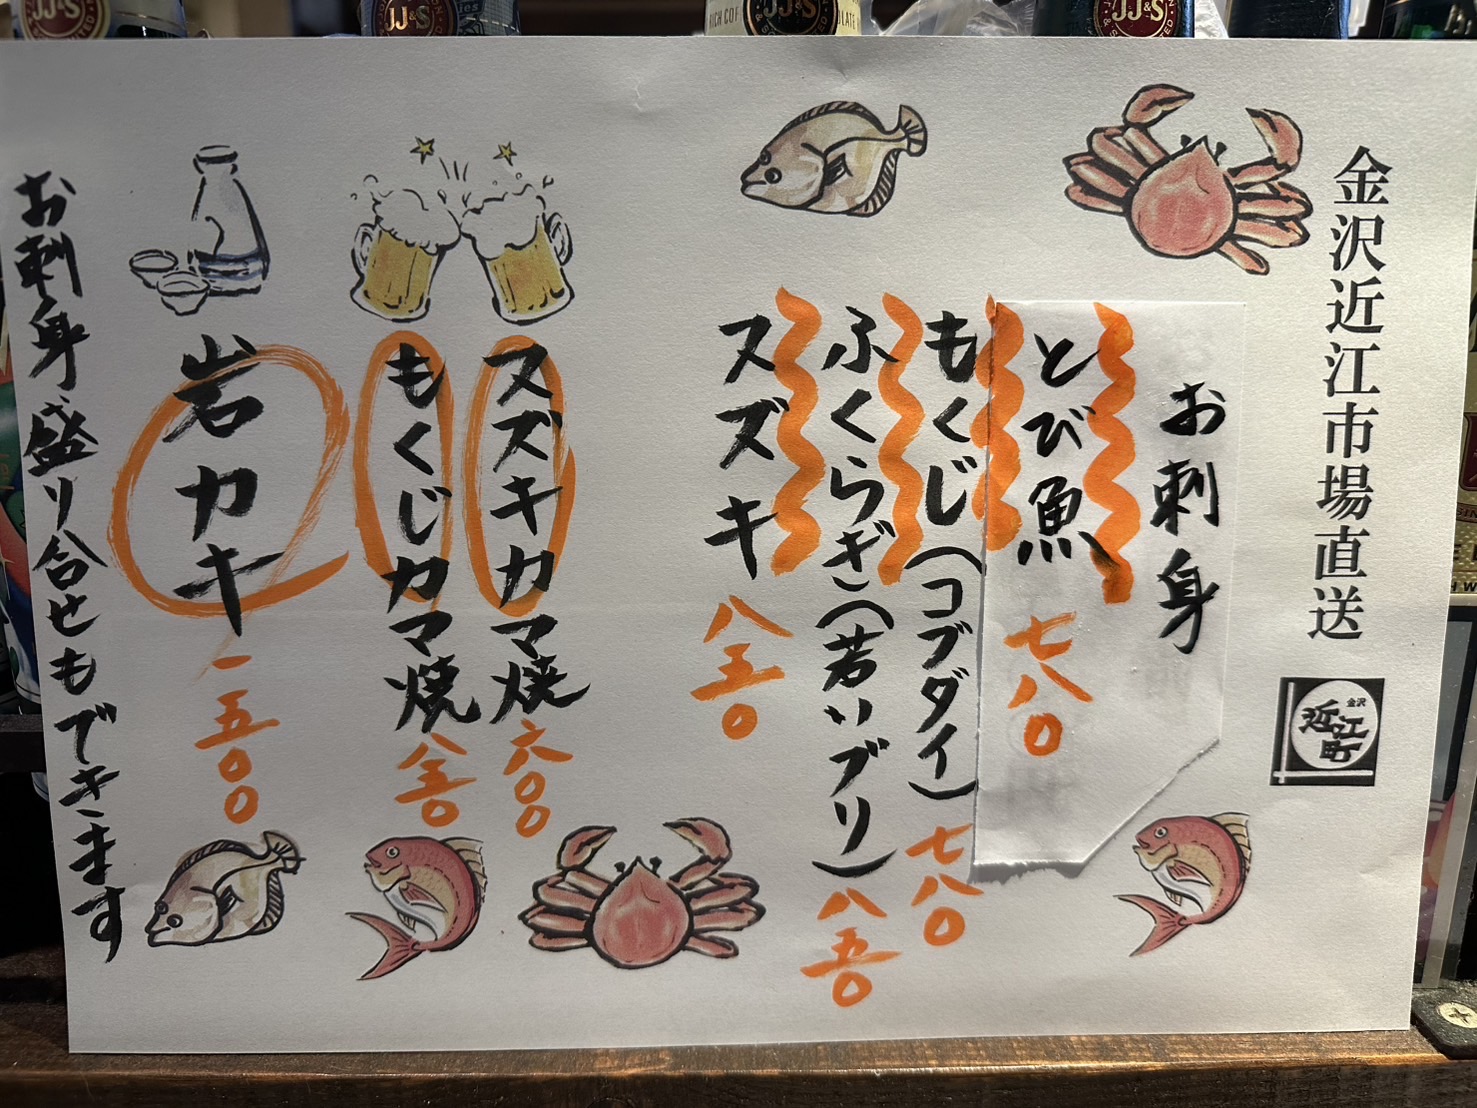 金沢近江市場直送
金沢
近江町
お刺身
とび魚 七八〇
もくじ(コブダイ) 七八〇
ふくらぎ(若いブリ) 八五〇
スズキ 八五〇
スズキカマ焼 六〇〇
もくじカマ焼 八五〇
岩カキ 一五〇〇
お刺身盛り合せもできます
JJ&S
JJ&S
JJ&S